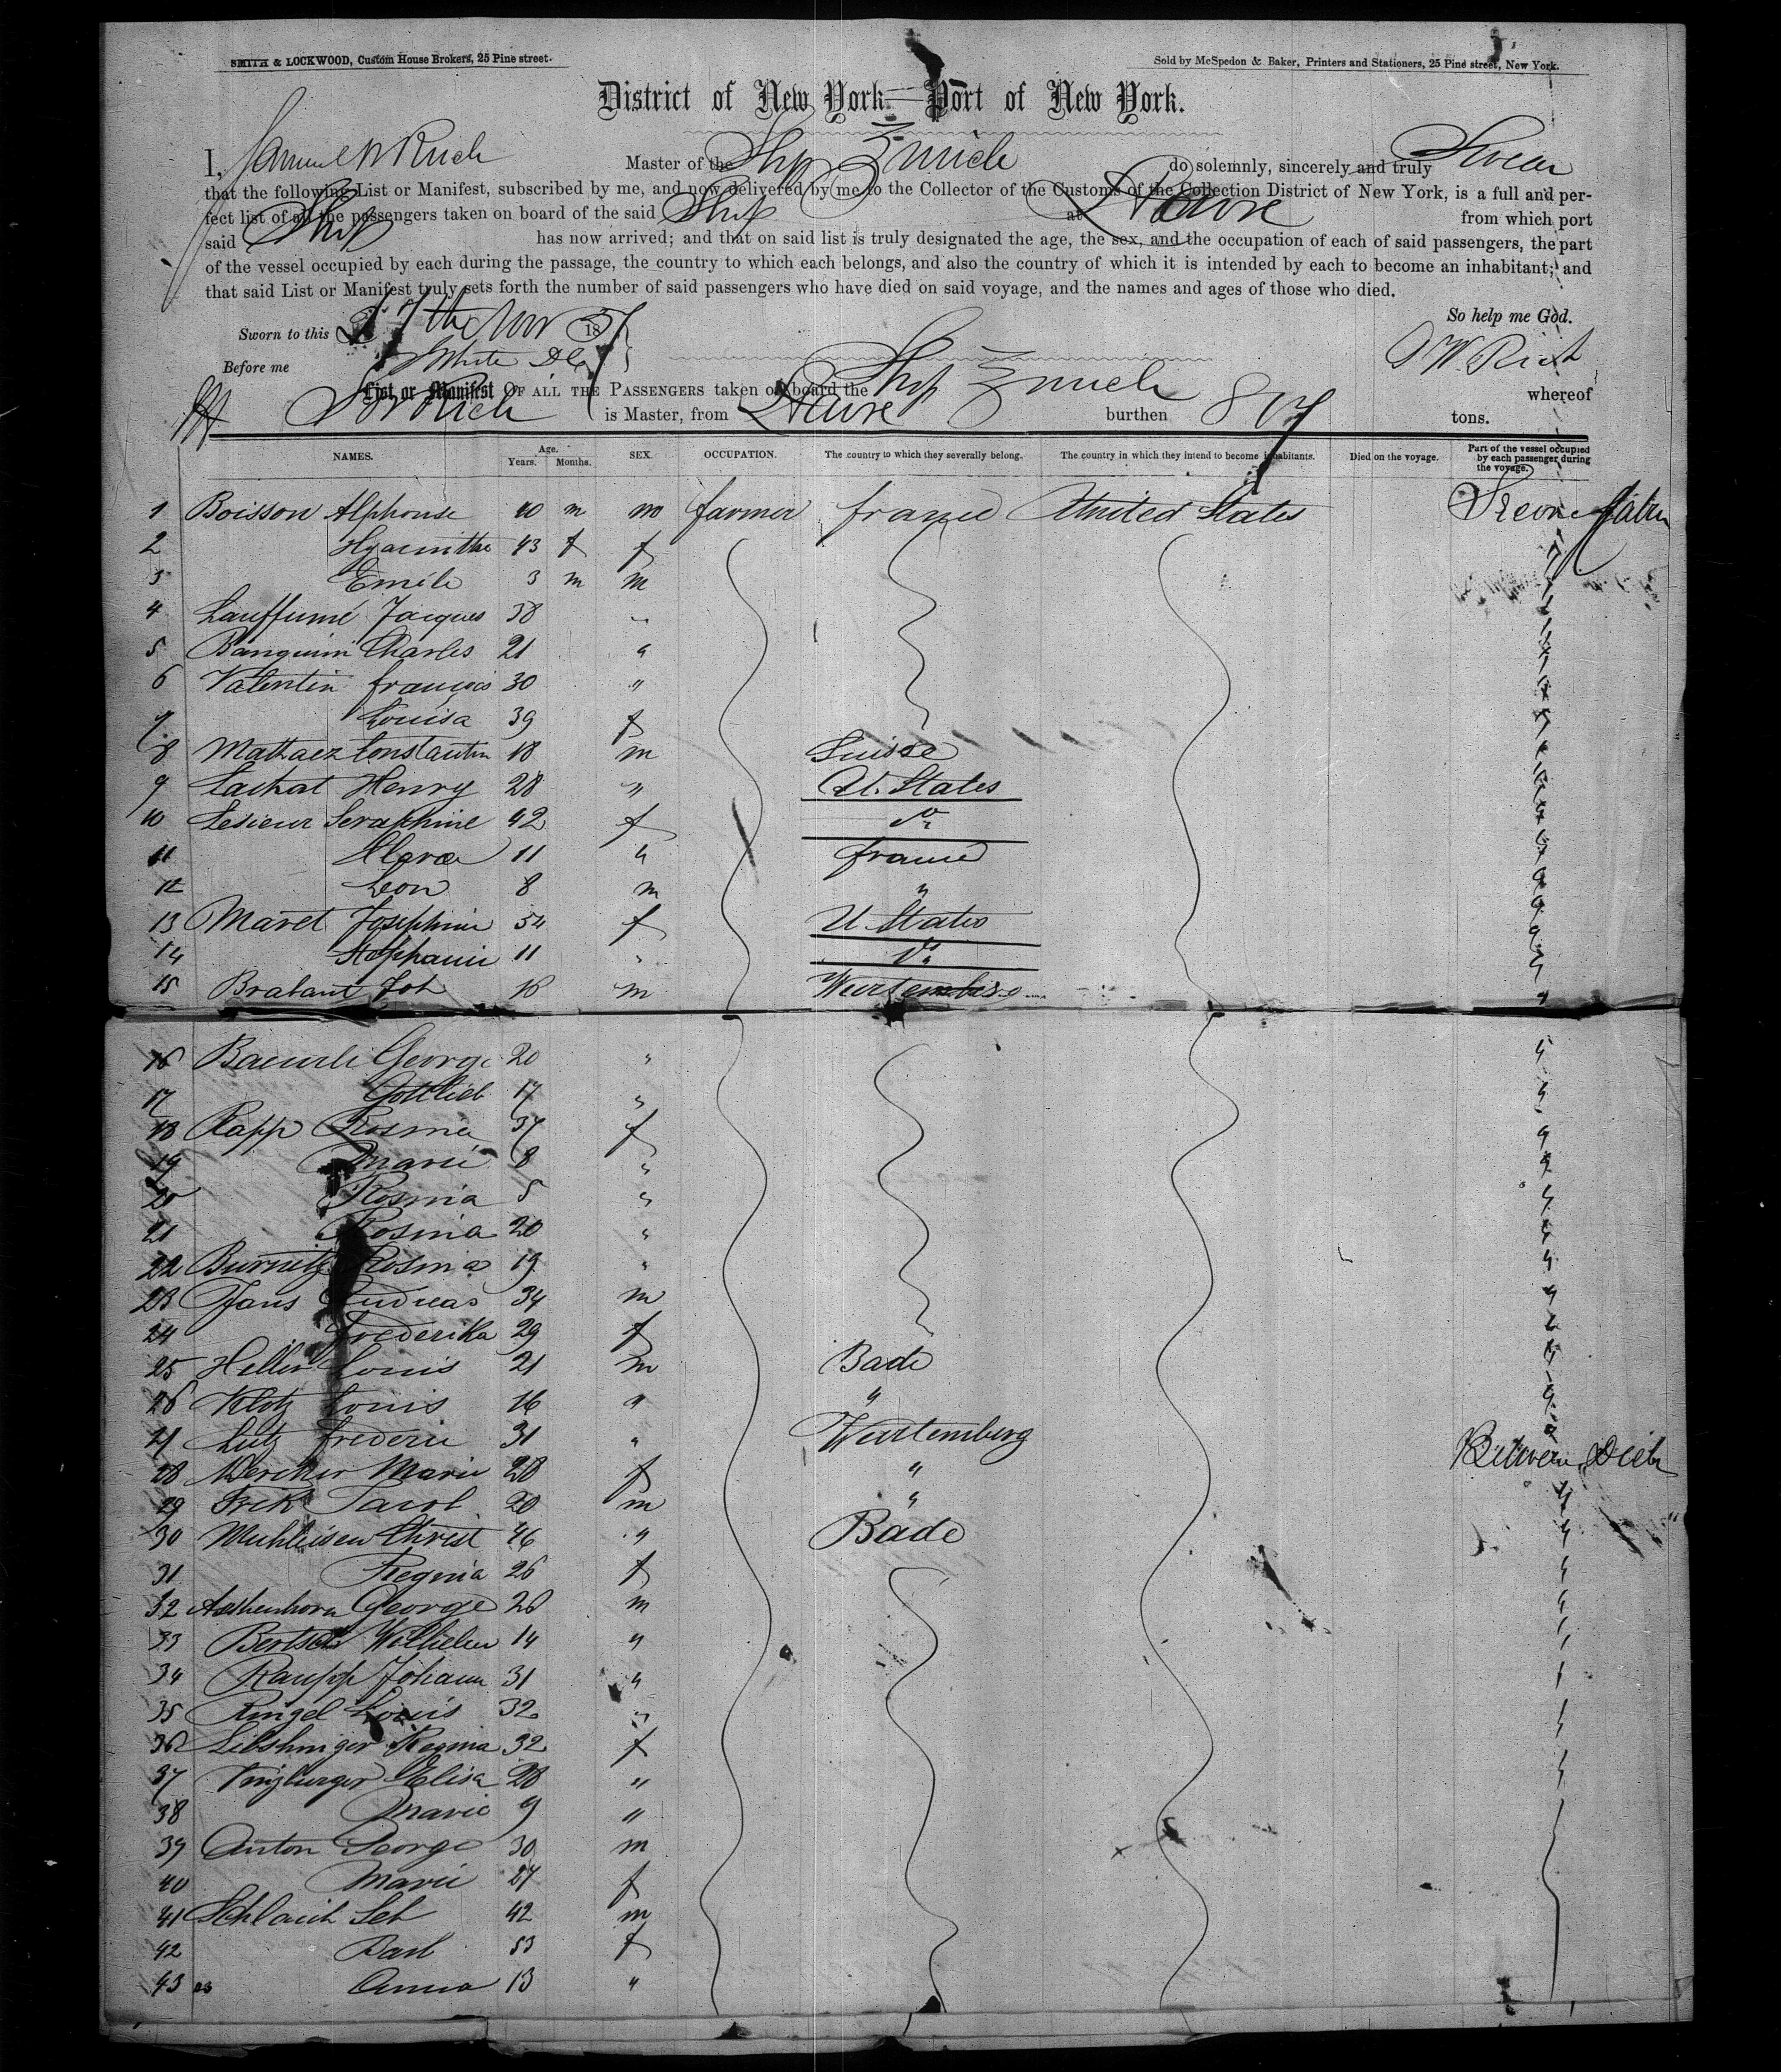 SMITH & LOCKWOOD, Custom House Brokers, 25 Pine street.
Sold by McSpedon & Baker, Printers and Stationers, 25 Pine street, New York.
District of New York—Port of New York.
I, Samuel W Rich Master of the Ship Zurich do solemnly, sincerely and truly Swear
that the following List or Manifest, subscribed by me, and now delivered by me to the Collector of the Customs of the Collection District of New York, is a full and per-
fect list of all the passengers taken on board of the said Ship at Havre from which port
said Ship has now arrived; and that on said list is truly designated the age, the sex, and the occupation of each of said passengers, the part
of the vessel occupied by each during the passage, the country to which each belongs, and also the country of which it is intended by each to become an inhabitant; and
that said List or Manifest truly sets forth the number of said passengers who have died on said voyage, and the names and ages of those who died.
So help me God.
Sworn to this 27th Nov 1857
S W Rich
Before me White
List or Manifest OF ALL THE PASSENGERS taken on board the Ship Zurich whereof
S W Rich is Master, from Havre burthen 817 tons.
NAMES. Age. Years. Months. SEX. OCCUPATION. The country to which they severally belong. The country in which they intend to become inhabitants. Died on the voyage. Part of the vessel occupied by each passenger during the voyage.
1 Boisson Alphonse 40 m m farmer france United States
2 Hyacinthe 43 f f
3 Emile 3 m m
4 Lauffumé Jacques 38 "
5 Banquin Charles 21 "
6 Valentin françois 30 "
7 Louisa 39 f
8 Constantin 18 m Suisse
9 Lachat Henry 28 " U. States
10 Lesieur Seraphine 42 f do
11 Clara 11 " france
12 Leon 8 m "
13 Maret Josephine 54 f U States
14 Stephanie 11 " do
15 Brabant Joh 16 m Wurtemberg
16 Baeuerle George 20 "
17 Gottlieb 17 "
18 Rapp Rosina 37 f
19 Marie 8 "
20 Rosina 5 "
21 Rosina 20 "
22 Rosina 19 "
23 Jans Andreas 34 m
24 Frederika 29 f
25 Heller Louis 21 m Bade
26 Klotz Louis 16 " "
27 Lutz frederic 31 " Wurtemberg
28 Marie 28 f " Between Decks
29 Frik Jacob 20 m "
30 Muhleisen Christ 46 " Bade
31 Regina 26 f
32 Aschenhorn George 28 m
33 Bertsch Wilhelm 14 "
34 Raupp Johann 31 "
35 Ringel Louis 32 "
36 Libshinger Regina 32 f
37 Elisa 28 "
38 Marie 9 "
39 Anton George 30 m
40 Marie 27 f
41 Schlaich Seb 42 m
42 Barb 53 f
43 Anna 13 "